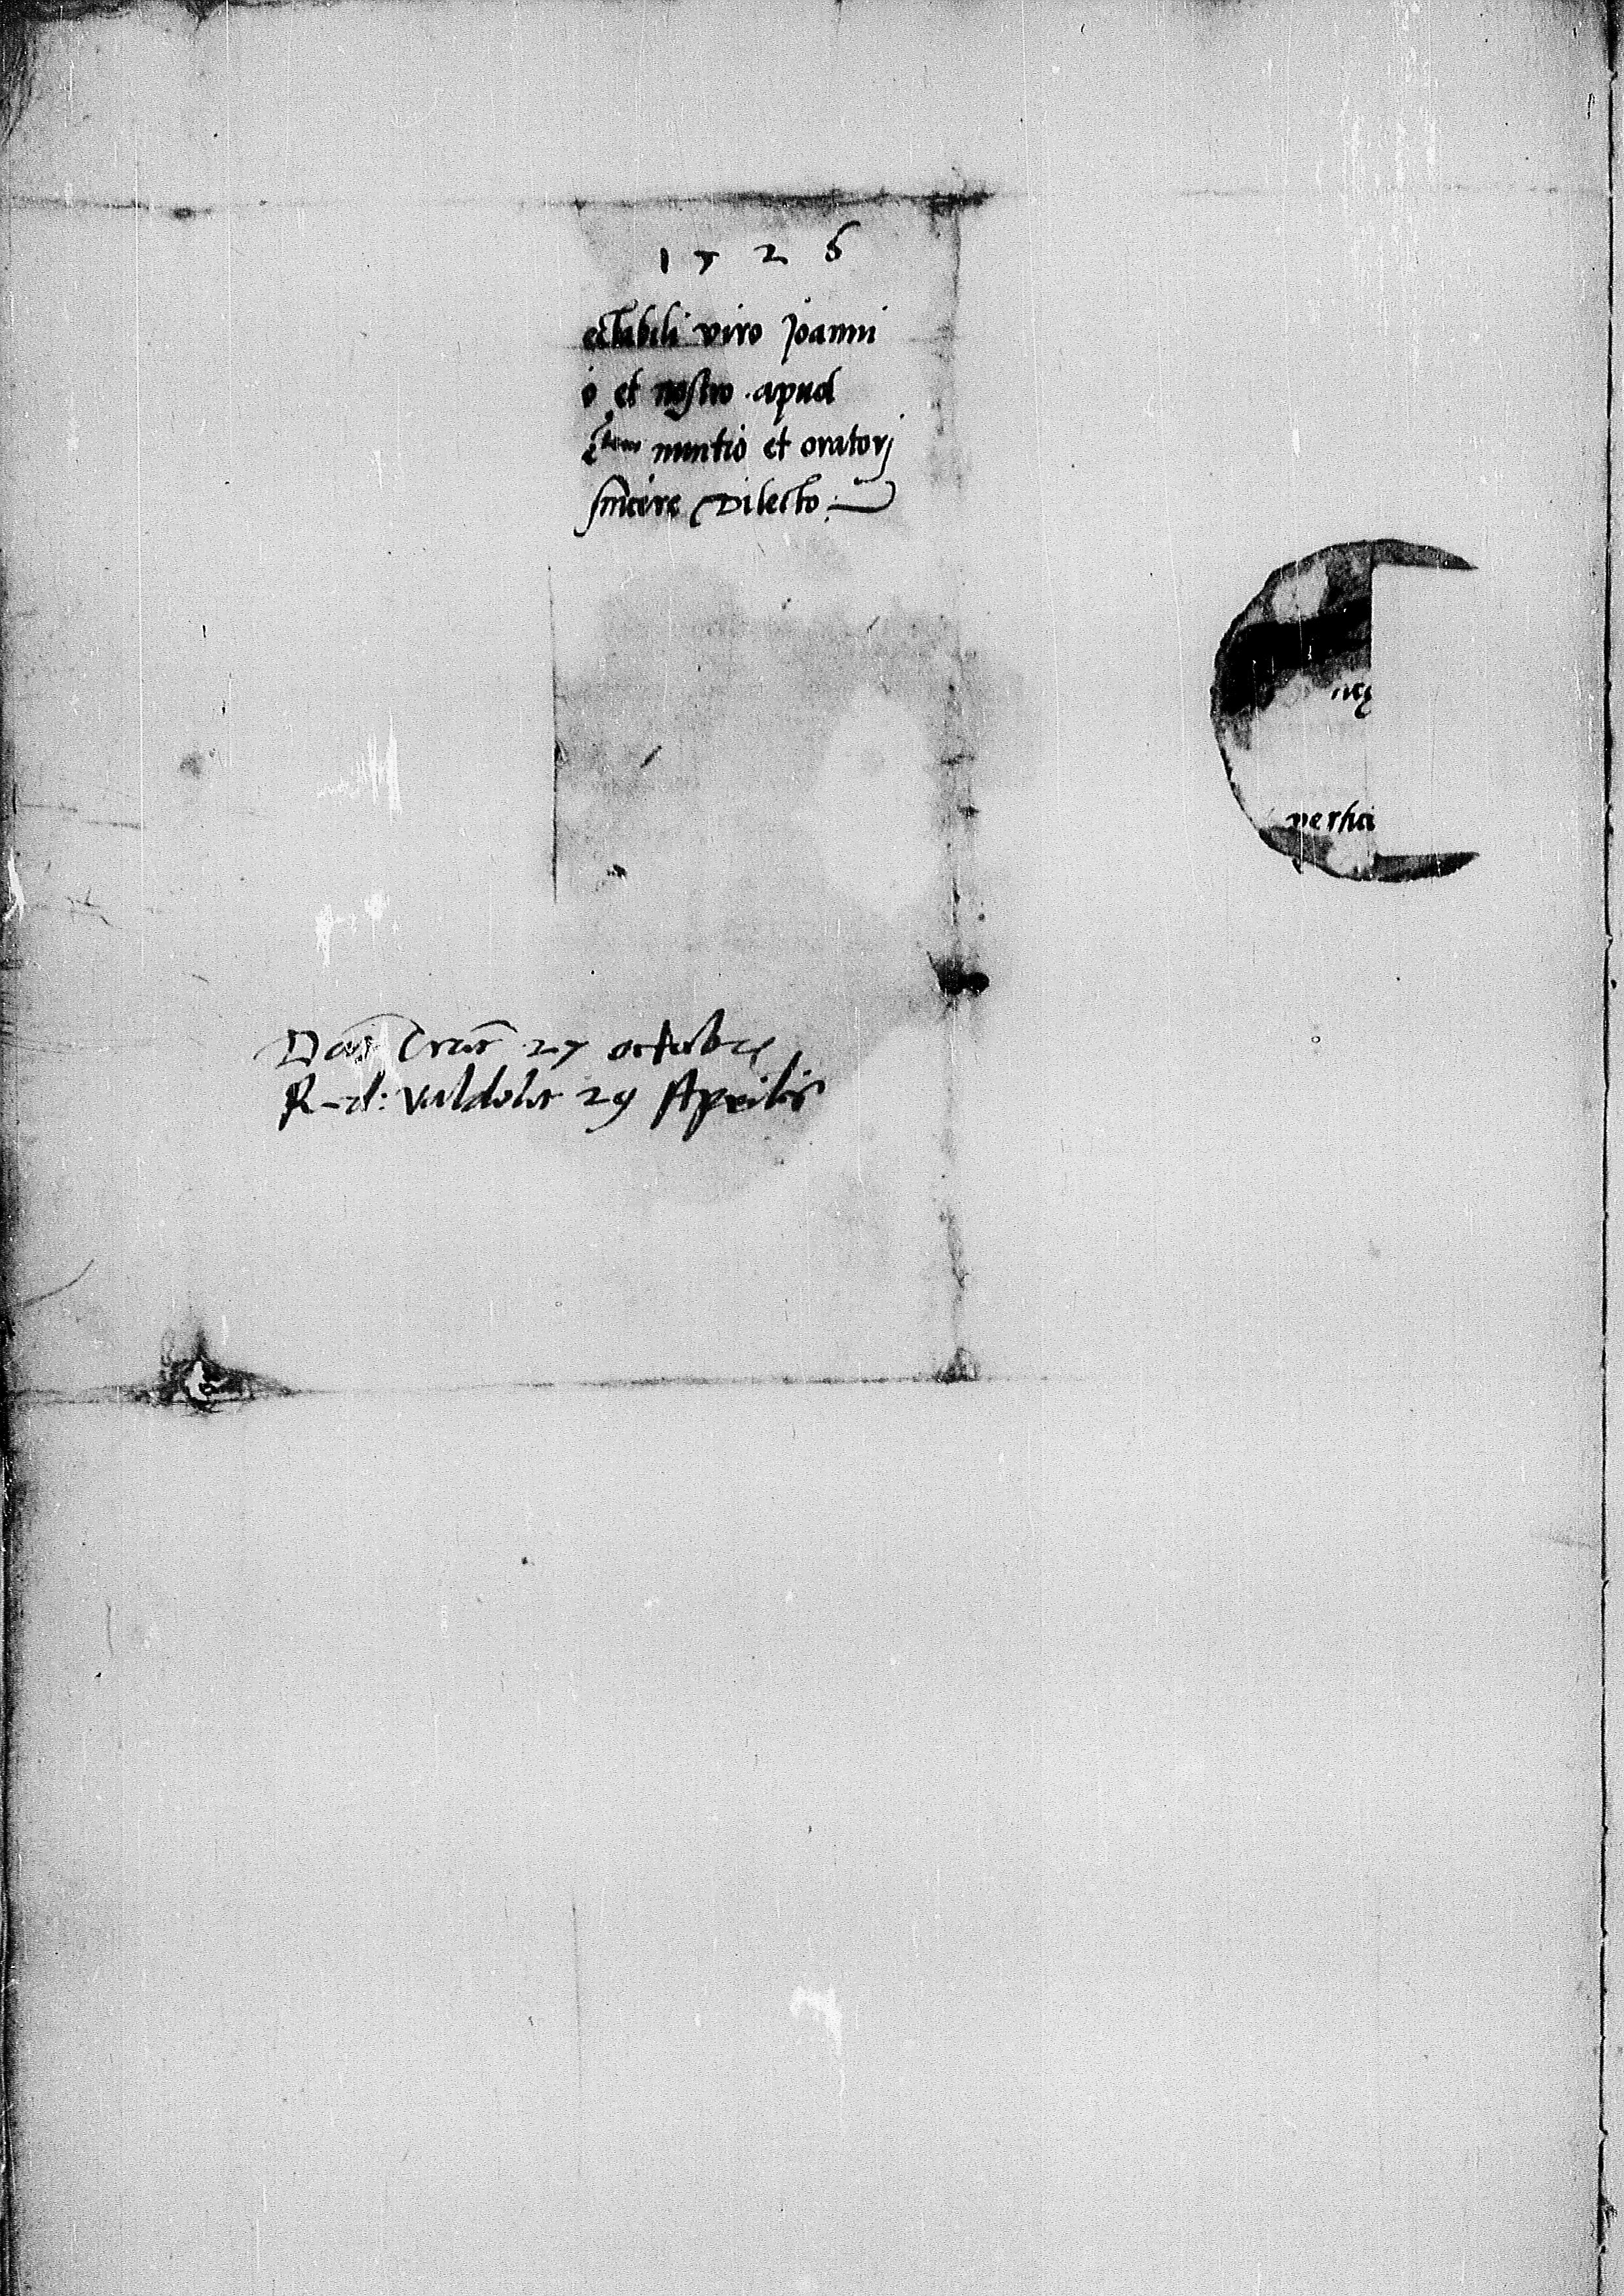 1526
ectabili viro Joanni
o et nostro apud
c̃tem nuntio et oratorj
sincere Dilecto
Dat̃ Crac̃ 27 octobris
R-d: Valdolit 29 Aprilis